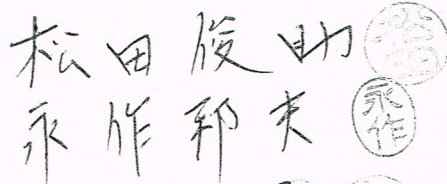 松田俊助
永作邦夫
永作